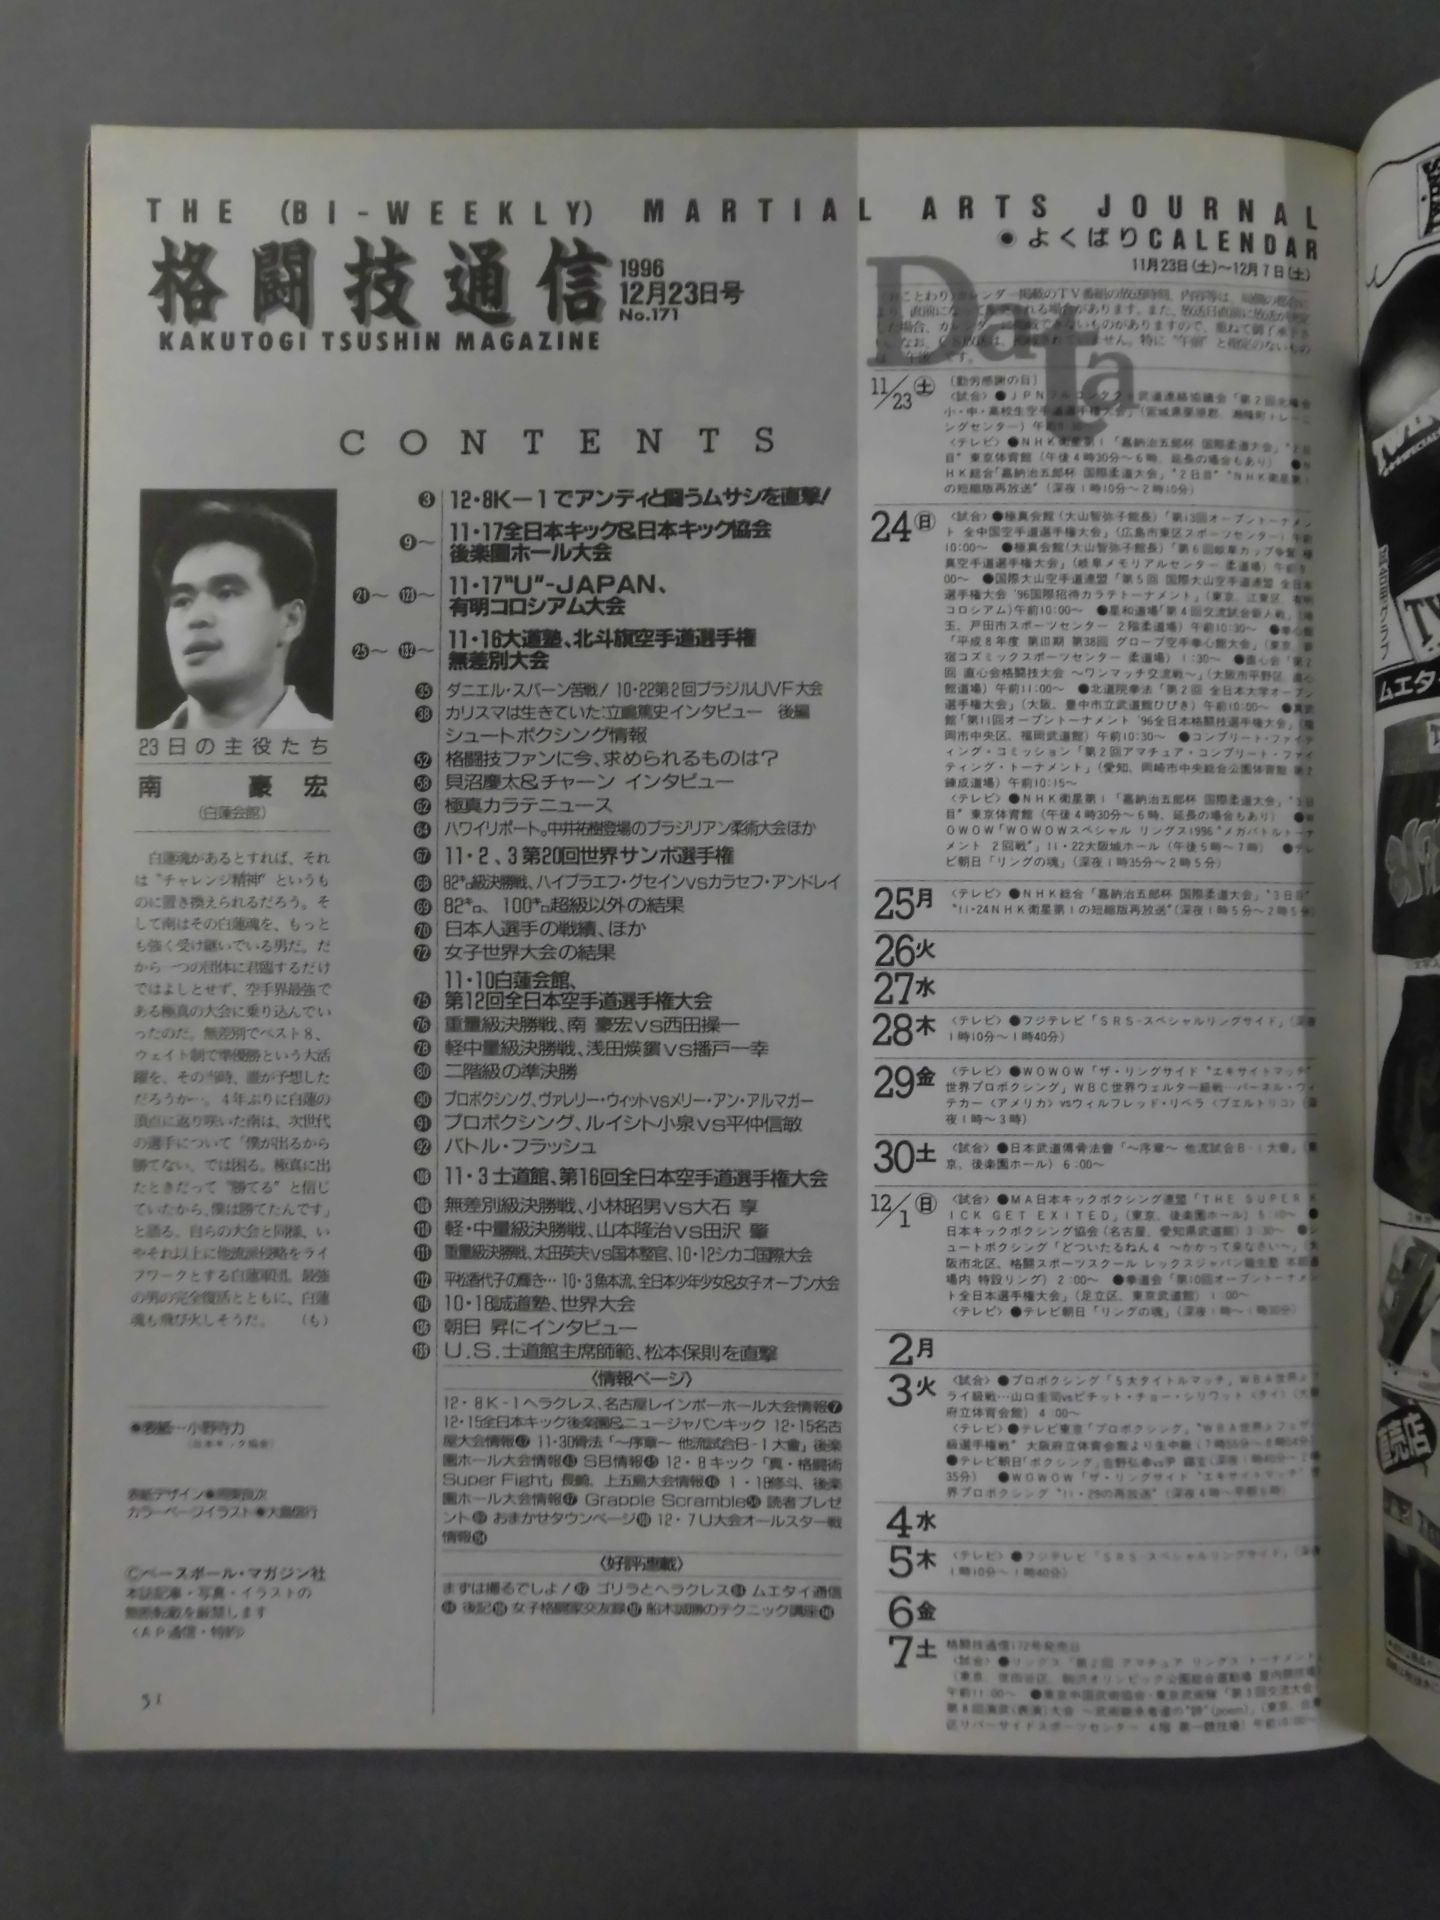 THE (BI-WEEKLY) MARTIAL ARTS JOURNAL
格闘技通信
1996
12月23日号
No.171
KAKUTOGI TSUSHIN MAGAZINE
CONTENTS
23日の主役たち
南 豪宏
(白蓮会館)
白蓮魂があるとすれば、それ
は“チャレンジ精神”というも
のに置き換えられるだろう。そ
して南はその白蓮魂を、もっと
も強く受け継いでいる男だ。だ
から一つの団体に君臨するだけ
ではよしとせず、空手界最強で
ある極真の大会に乗り込んでい
ったのだ。無差別でベスト8、
ウェイト制で準優勝という大活
躍を、その当時、誰が予想した
だろうか…。4年ぶりに白蓮の
頂点に返り咲いた南は、次世代
の選手について「僕が出るから
勝てない、では困る。極真に出
たときだって“勝てる”と信じ
ていたから、僕は勝てたんです」
と語る。自らの大会と同様、い
やそれ以上に他流派侵略をライ
フワークとする白蓮軍団。最強
の男の完全復活とともに、白蓮
魂も飛び火しそうだ。 (も)
●表紙…小野寺力
(日本キック協会)
カラーページイラスト●大島信行
©ベースボール・マガジン社
本誌記事・写真・イラストの
無断転載を厳禁します
〈AP通信・特約〉
51
3 12・8K-1でアンディと闘うムサシを直撃!
9〜 11・17全日本キック&日本キック協会
後楽園ホール大会
21〜 123〜 11・17“U”-JAPAN、
有明コロシアム大会
25〜 132〜 11・16大道塾、北斗旗空手道選手権
無差別大会
35 ダニエル・スバーン苦戦! 10・22第2回ブラジルUVF大会
38 カリスマは生きていた:立嶋篤史インタビュー 後編
シュートボクシング情報
52 格闘技ファンに今、求められるものは?
58 貝沼慶太&チャーン インタビュー
62 極真カラテニュース
64 ハワイリポート。中井祐樹登場のブラジリアン柔術大会ほか
67 11・2、3第20回世界サンボ選手権
68 82㌔級決勝戦、ハイブラエフ・グセインvsカラセフ・アンドレイ
69 82㌔、100㌔超級以外の結果
70 日本人選手の戦績、ほか
72 女子世界大会の結果
11・10白蓮会館、
75 第12回全日本空手道選手権大会
76 重量級決勝戦、南 豪宏vs西田操一
78 軽中量級決勝戦、浅田煐鎭vs播戸一幸
80 二階級の準決勝
90 プロボクシング、ヴァレリー・ウィットvsメリー・アン・アルマガー
91 プロボクシング、ルイシト小泉vs平仲信敏
92 バトル・フラッシュ
106 11・3士道館、第16回全日本空手道選手権大会
108 無差別級決勝戦、小林昭男vs大石 享
110 軽・中量級決勝戦、山本隆治vs田沢 肇
111 重量級決勝戦、太田英夫vs国本整官、10・12シカゴ国際大会
112 平松香代子の輝き… 10・3魚本流、全日本少年少女&女子オープン大会
116 10・18誠道塾、世界大会
136 朝日 昇にインタビュー
139 U.S.士道館主席師範、松本保則を直撃
〈情報ページ〉
12・8K-1ヘラクレス、名古屋レインボーホール大会情報7
12・15全日本キック後楽園&ニュージャパンキック 12・15名古
屋大会情報 11・30骨法「〜序章〜 他流試合B-1大會」後楽
園ホール大会情報 SB情報 12・8キック「真・格闘術
Super Fight」長崎、上五島大会情報 1・18修斗、後楽
園ホール大会情報 Grapple Scramble 読者プレゼ
ント おまかせタウンページ 12・7U大会オールスター戦
情報
〈好評連載〉
まずは撮るでしょ! ゴリラとヘラクレス ムエタイ通信
後記 女子格闘家交友録 船木誠勝のテクニック講座
●よくばりCALENDAR
11月23日(土)〜12月7日(土)
Data
11/23 土 (勤労感謝の日)
〈テレビ〉●NHK衛星第1「嘉納治五郎杯 国際柔道大会」“2日
目”東京体育館(午後4時30分〜6時、延長の場合もあり) ●N
HK総合「嘉納治五郎杯 国際柔道大会」“2日目”“NHK衛星第1
の短縮版再放送”(深夜1時10分〜2時10分)
24 日 〈試合〉●極真会館(大山智弥子館長)「第13回オープントーナメン
ト 全中国空手道選手権大会」(広島市東区スポーツセンター)午前
10:00〜 ●極真会館(大山智弥子館長)「第6回岐阜カップ争奪 極
真空手道選手権大会」(岐阜メモリアルセンター 柔道場)午前9:
00〜 ●国際大山空手道連盟「第5回 国際大山空手道連盟 全日本
選手権大会 '96国際招待カラテトーナメント」(東京、江東区、有明
コロシアム)午前10:00〜 ●星和道場「第4回交流試合新人戦」(埼
玉、戸田市スポーツセンター 2階柔道場)午前10:30〜 ●拳心館
「平成8年度 第III期 第38回 グローブ空手拳心館大会」(東京、新
宿コズミックスポーツセンター 柔道場)1:30〜 ●直心会「第2
回 直心会格闘技大会 〜ワンマッチ交流戦〜」(大阪市平野区、直心
館道場)午前11:00〜 ●北道院拳法「第2回 全日本大学オープン
選手権大会」(大阪、豊中市立武道館ひびき)午前10:00〜 ●真武
館「第11回オープントーナメント '96全日本格闘技選手権大会」(福
岡市中央区、福岡武道館)午前10:30〜 ●コンプリート・ファイテ
ィング・コミッション「第2回アマチュア・コンプリート・ファイ
ティング・トーナメント」(愛知、岡崎市中央総合公園体育館 第2
錬成道場)午前10:15〜
〈テレビ〉●NHK衛星第1「嘉納治五郎杯 国際柔道大会」“3日
目”東京体育館(午後4時30分〜6時、延長の場合もあり) ●W
OWOW「WOWOWスペシャル リングス1996“メガバトルトーナ
メント 2回戦”」11・22大阪城ホール(午後5時〜7時) ●テレ
ビ朝日「リングの魂」(深夜1時35分〜2時5分)
25 月 〈テレビ〉●NHK総合「嘉納治五郎杯 国際柔道大会」“3日目”
“11・24NHK衛星第1の短縮版再放送”(深夜1時5分〜2時5分)
26 火
27 水
28 木 〈テレビ〉●フジテレビ「SRS-スペシャルリングサイド」(深夜
1時10分〜1時40分)
29 金 〈テレビ〉●WOWOW「ザ・リングサイド“エキサイトマッチ”
世界プロボクシング」WBC世界ウェルター級戦…パーネル・ウィ
テカー〈アメリカ〉vsウィルフレッド・リベラ〈プエルトリコ〉(深
夜1時〜3時)
30 土 〈試合〉●日本武道傳骨法會「〜序章〜 他流試合B-1大會」(東
京、後楽園ホール)6:00〜
12/1 日 〈試合〉●MA日本キックボクシング連盟「THE SUPER K
ICK GET EXITED」(東京、後楽園ホール)5:10〜 ●
日本キックボクシング協会(名古屋、愛知県武道館)3:30〜 ●シ
ュートボクシング「どついたるねん4 〜かかって来なさい〜」(大
阪市北区、格闘スポーツスクール レックスジャパン龍生塾 本部道
場内 特設リング)2:00〜 ●拳道会「第10回オープントーナメン
ト全日本選手権大会」(足立区、東京武道館)1:00〜
〈テレビ〉●テレビ朝日「リングの魂」(深夜1時〜1時30分)
2 月
3 火 〈試合〉●プロボクシング「5大タイトルマッチ」WBA世界フ
ライ級戦…山口圭司vsピチット・チョー・シリワット〈タイ〉(大阪
府立体育会館)4:00〜
4 水
5 木 〈テレビ〉●フジテレビ「SRS-スペシャルリングサイド」(深夜
1時10分〜1時40分)
6 金
7 土 格闘技通信172号発売日
直売店